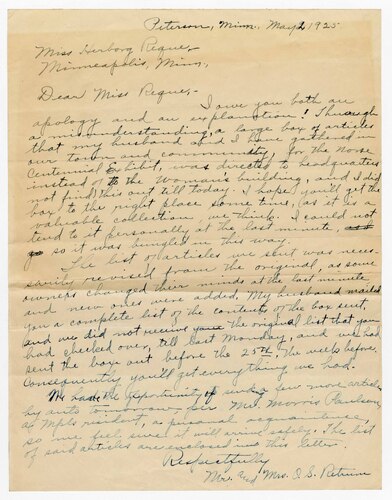 Peterson, Minn, May 2, 1925
Miss Herborg Reque,-
Minneapolis, Minn,
Dear Miss Reque,-
I owe you both an
apology and an explanation! Through
a misunderstanding, a large box of articles
that my husband and I have gathered in
our town and community, for the Norse
Centennial Exhibit was directed to headquarters
instead of to the Woman's building, and I did
not find this out till today. I hope you'll get the
box to the right place some time, (as it is a
valuable collection we think. I could not
tend to it personally at the last minute,
so it was bungled in this way.
The list of articles we sent was neces-
sarily revised from the original, as some
owners changed their minds at the last minute
and new ones were added. My husband mailed
you a complete list of the contents of the box sent,
and we did not receive the original list that you
had checked over, till last Monday, and we had
sent the box out before the 25th, the week before.
Consequently you'll get everything we had.
We have the opportunity of sending a few more articles
by auto to-morrow, for Mrs. Morris Paulson,
a Mpls resident, a personal acquaintance,
so we feel sure it will arrive safely. The list
of said articles are enclosed in this letter.
Respectfully
Mr. and Mrs. O. S.